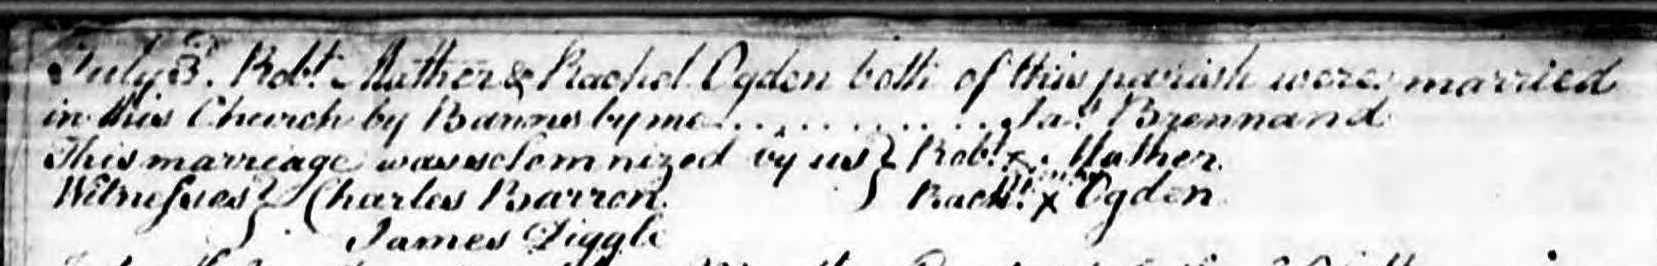 July 3d. Robt. Mather & Rachel Ogden both of this parish were married
in this Church by Bannes by me . . . . . . . . . . . . Jas. Brennand
This marriage was solomnized by us } Robt. x Mather
Witnesses } Charles Barron } Rachl. x Ogden
James Diggle